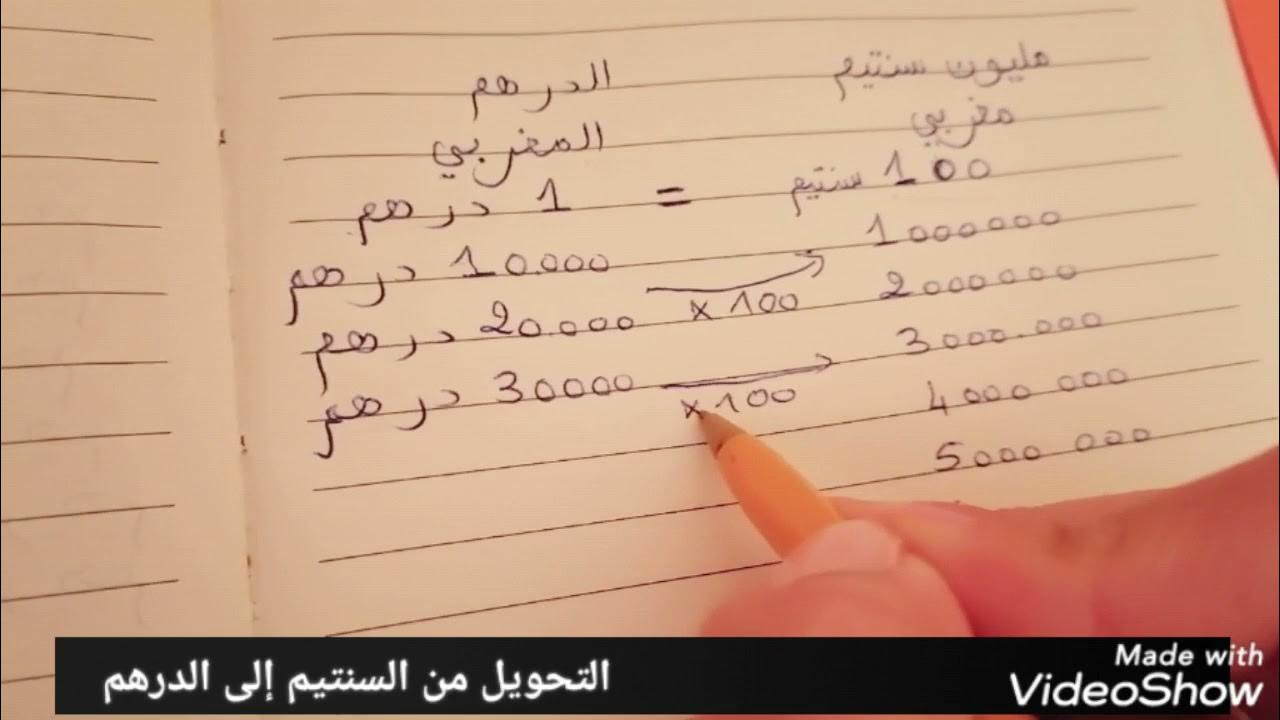 مليون سنتيم الدرهم
مغربي المغربي
100 سنتيم = 1 درهم
1000000 10.000 درهم
x 100
2000000 20.000 درهم
3000.000 30000 درهم
x 100
4000 000
5000 000
التحويل من السنتيم إلى الدرهم
Made with
VideoShow